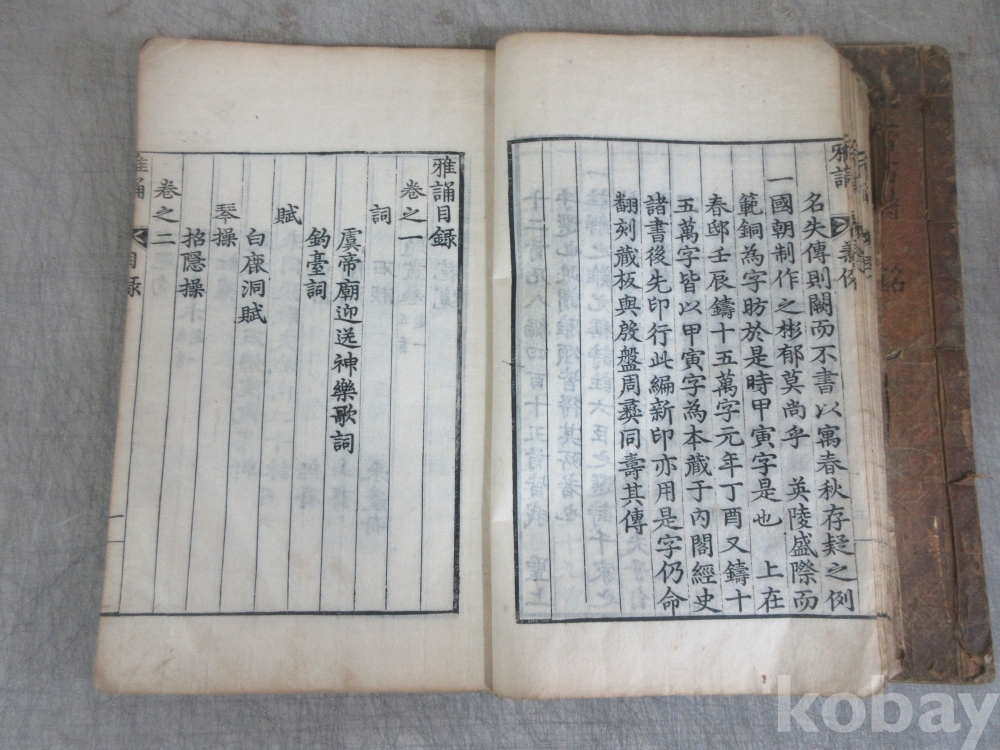 雅誦
義例
名失傳則闕而不書以寓春秋存疑之例
一國朝制作之彬郁莫尚乎 英陵盛際而
範銅為字昉於是時甲寅字是也 上在
春邸壬辰鑄十五萬字元年丁酉又鑄十
五萬字皆以甲寅字為本藏于內閣經史
諸書後先印行此編新印亦用是字仍命
翻刻藏板與殷盤周彝同壽其傳
雅誦目錄
卷之一
詞
虞帝廟迎送神樂歌詞
釣臺詞
賦
白鹿洞賦
琴操
招隱操
卷之二
雅誦
目錄
kobay